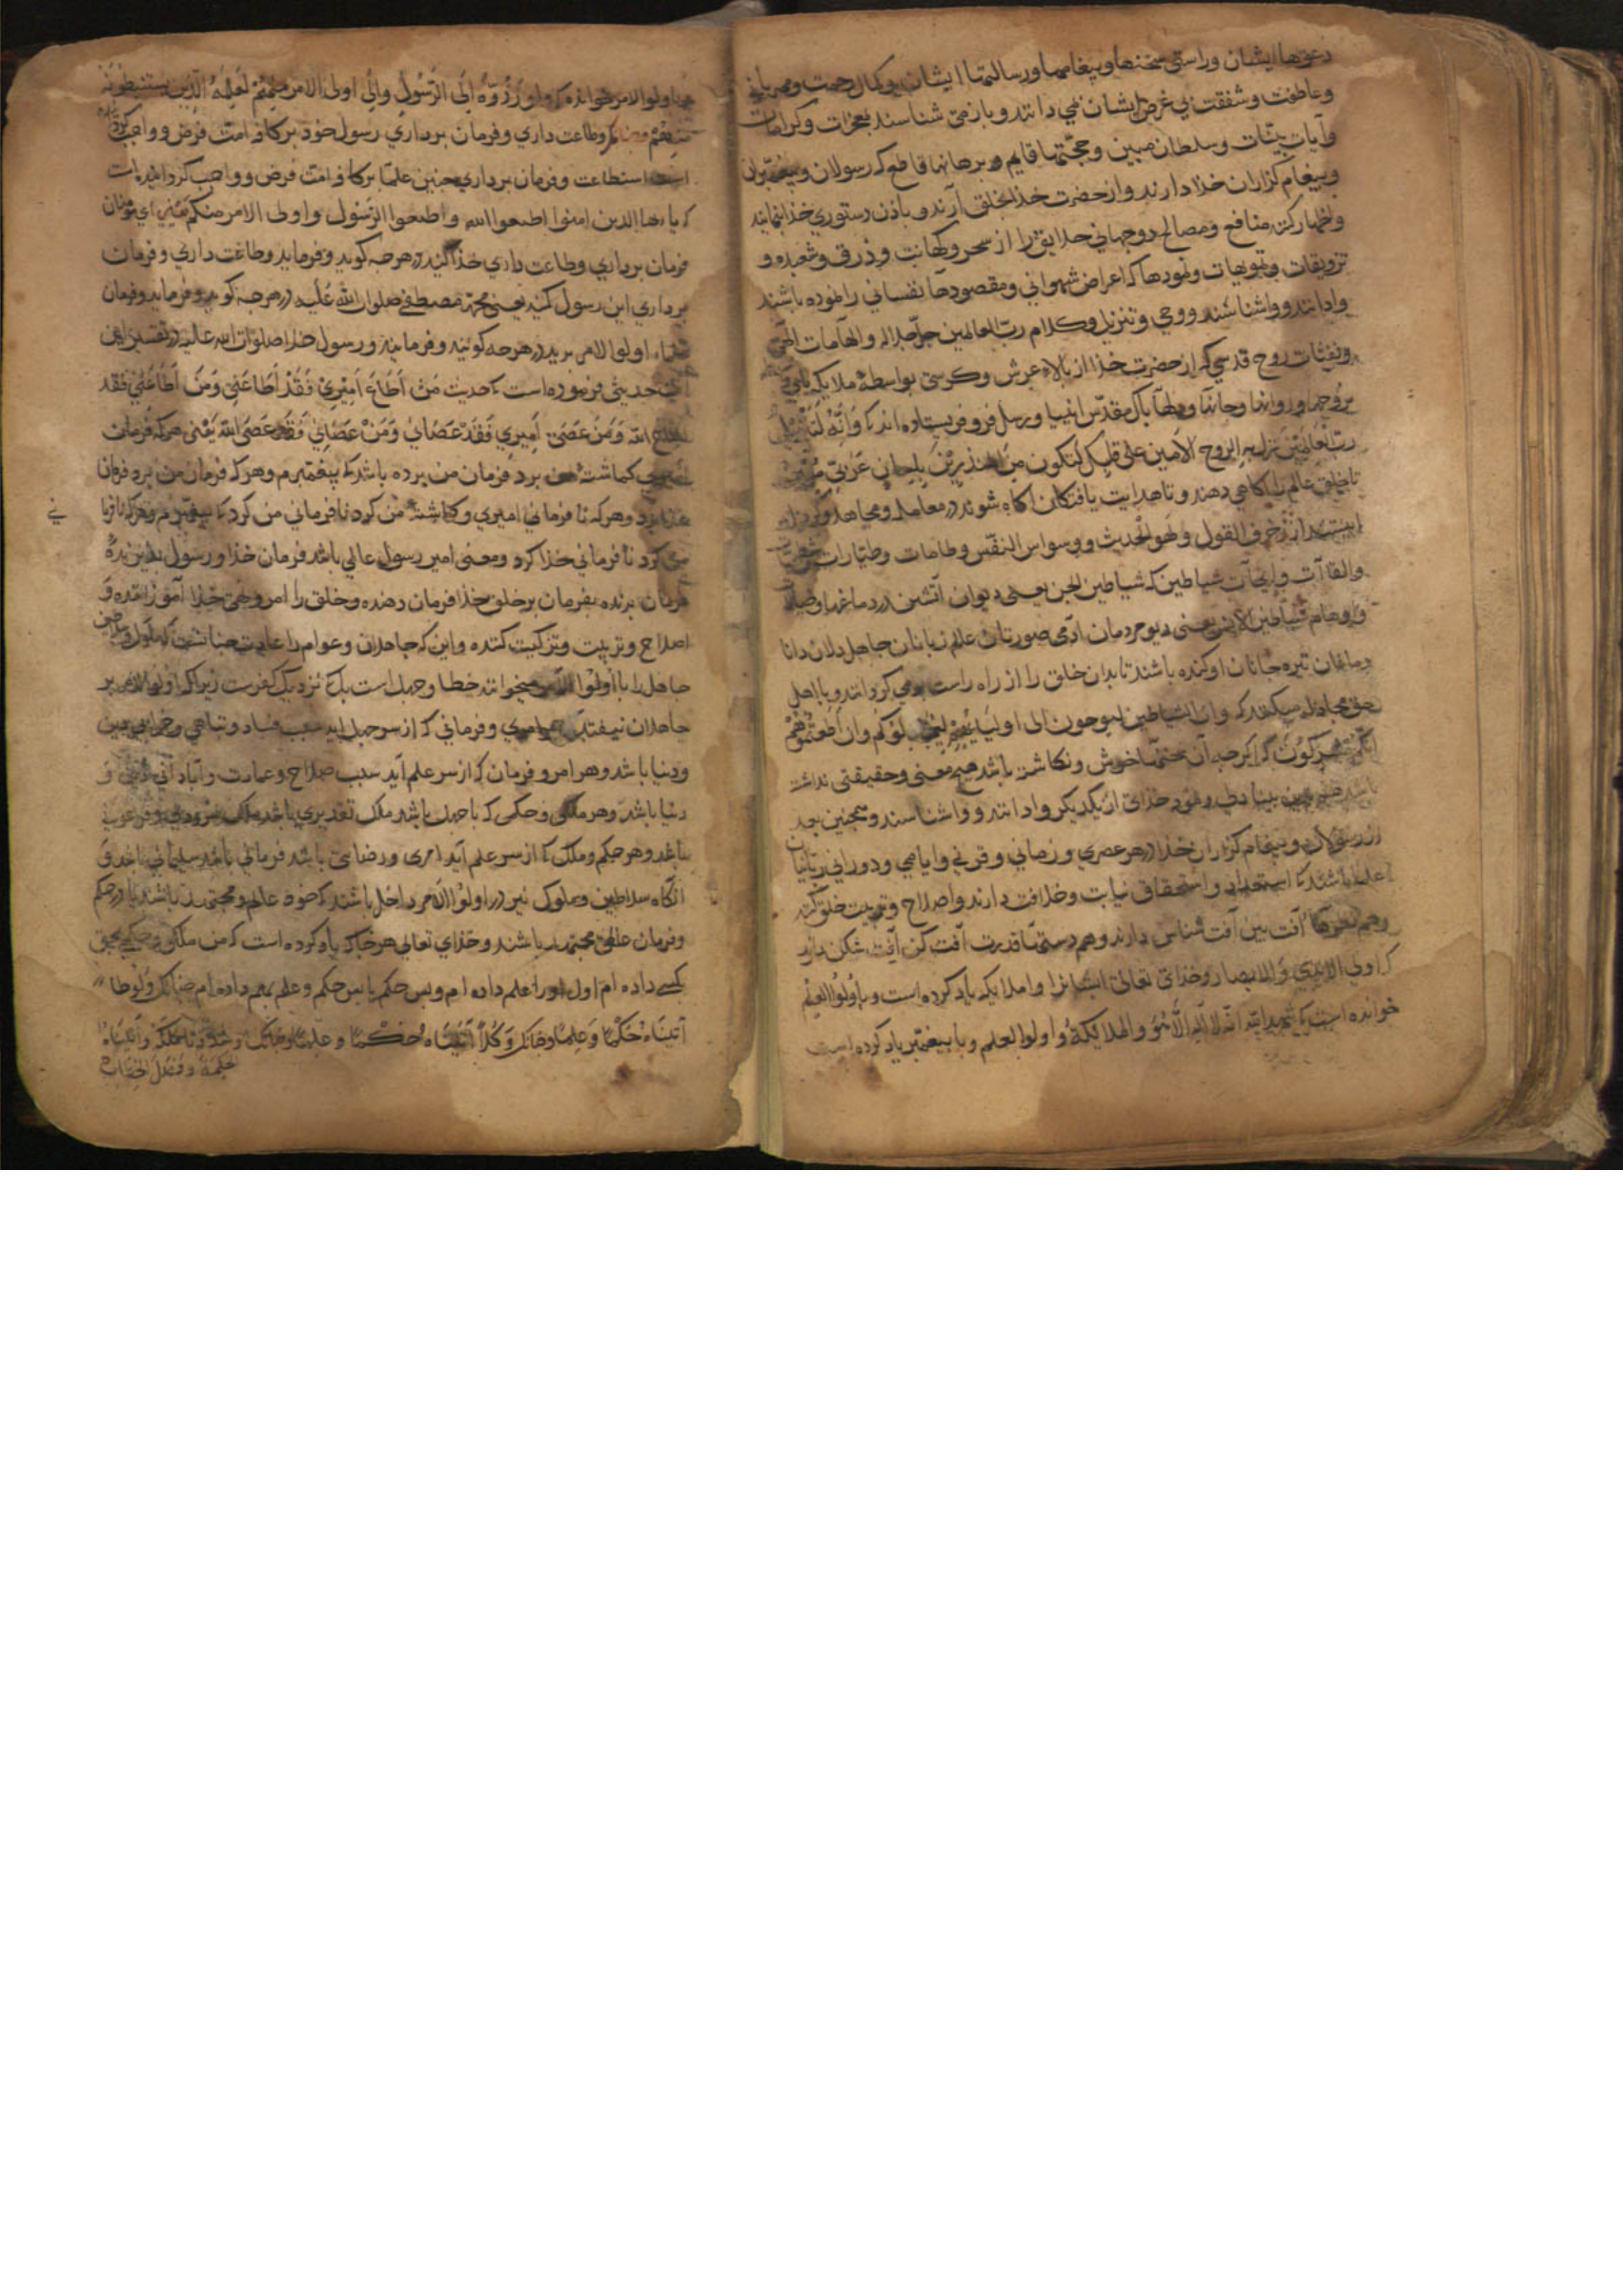 دعوتها ایشان و راستی سخنها و پیغامها و رسالتها ایشان و کمال رحمت و مهربانی
و عاطفت و شفقت بی غرض ایشان می دانند و باز می شناسند بمعجزات و کرامات
و آیات بینات و سلطان مبین و حجتها قایم و برهانها قاطع که رسولان و پیغمبران
و پیغام گزاران خذا دارند و از حضرت خذا بخلق آرند و باذن دستوری خذا نمایند
و اظهار کنند منافع و مصالح دوجهانی خلایق را از سحر و کهانت و ذرق و شعبده و
تزویقات و تمویهات و نمودها که اعراض شهوانی و مقصودها نفسانی را نموده باشند
وادانند و واشناسند و وحی و تنزیل و کلام رب العالمین جل جلاله و الهامات الهی
و نفثات روح قدسی که از حضرت خذا از بالاء عرش و کرسی بواسطه ملایکه
بروحها و روانها و جانها و دلها پاک مقدس انبیا و رسل فرو فریستاده اند که وَاِنَّهُ لَتَنْزِیلُ
رب العالمین نزل به الروح الامین علی قلبک لتکون من المنذرین بلسان عربی مبین
تا بخلق عالم آگاهی دهند و تا هدایت یافتکان آکاه شوند در معامله و مجاهده
از زخرف القول و لهو الحدیث و وسواس النفس و طامات و طیارات
و القاآت و ایحاآت شیاطین که شیاطین الجن یعنی دیوان آتشین در دماغها و
و اوهام شیاطین الانس یعنی دیو مردمان آدمی صورتان عالم زبانان جاهل دلان دانا
دماغان تیره جانان اوکنده باشند تا بدان خلق را از راه راست می کردانند و با اهل
حق مجادله میکنند که وان الشیاطین لیوحون الی اولیائهم لیجادلوکم وان اطعتموهم
انکم لمشرکون که اکرچه آن سخنها خوش و نکاشته باشد هیچ معنی و حقیقتی نداشته
باشد بینا دلی و نور خذای از یکدیکر وادانند و واشناسند و همچنین بعد
از رسولان و پیغام کزاران خذا در هر عصری و زمانی و قرنی و ایامی و دورانی ربانیان
علما باشند که استعداد و استحقاق نیابت و خلافت دارند و اصلاح و تربیت خلق کنند
و هم نظرها آفت بین آفت شناس دارند و هم دستها قدرت آفت کن آفت شکن دارند
که اولی الایدی والابصار و خذای تعالی ایشانرا و املایکه یاد کرده است و با اولوا العلم
خوانده است که شهد الله انه لا اله الا هو والملایکة و اولوا العلم و با پیغمبر یاد کرده است
و با اولوا الامر خوانده که ولو ردوه الی الرسول والی اولی الامر منهم لعلمه الذین یستنبطونه
منهم و طاعت داری و فرمان برداری رسول خود بر کافه امت فرض و واجب کرده
است استطاعت و فرمان برداری همچنین علما بر کافه امت فرض و واجب کردانیده است
که یا ایها الذین امنوا اطیعوا الله و اطیعوا الرسول و اولی الامر منکم یعنی ای مؤمنان
فرمان برداری و طاعت داری خذا کنید در هرچه کوید و فرماید و طاعت داری و فرمان
برداری این رسول کنید یعنی محمد مصطفی صلوات الله علیه در هرچه کوید و فرماید و فرمان
اولوا الامر برید در هرچه کویند و فرمایند و رسول خذا صلوات الله علیه در تفسیر این
آیت حدیثی فرموده است که حدیث مَنْ اَطَاعَ اَمِیْرِیْ فَقَدْ اَطَاعَنِیْ وَمَنْ اَطَاعَنِیْ فَقَد
اطاع الله وَمَنْ عَصَیٰ اَمِیرِی فَقَدْ عَصَانِیْ وَمَنْ عَصَانِیْ فَقَد عَصَی الله یَعْنی هرکه فرمان
امیری کماشته من برد فرمان من برده باشد که پیغمبرم و هرکه فرمان من برد فرمان
خذا برد و هرکه نا فرمانی امیری و کماشته من کرد نافرمانی من کرد که پیغمبرم و هرکه نافرما
نی
من کرد نا فرمانی خذا کرد و معنی امیر رسول عالی باشد فرمان خذا و رسول پذیرنده
فرمان برنده بفرمان بر خلق خذا فرمان دهنده و خلق را امر و نهی خذا آموزاننده و
اصلاح و تربیت و تزکیت کننده و این که جاهلان و عوام را عادت چنانست که ملوک و سلاطین
جاهل را با اولوا الامر میخوانند خطا و جهل است بلک نزدیک کفرست زیراکه اولوا الامر بر
جاهلان نیفتد هر امری و فرمانی که از سر جهل آید سبب فساد و تباهی و خرابی دین
و دنیا باشد و هر امر و فرمان که از سر علم آید سبب صلاح و عمارت و آبادانی دین و
دنیا باشد و هر ملکی و حکمی که با جهل باشد ملک تقدیری باشد ملک نمرودی و فرعونی
باشد و هر حکم و ملک که از سر علم آید امری و رضای باشد فرمانی باشد سلیمانی باشد و
آنکاه سلاطین و ملوک نیز در اولوا الامر داخل باشند که خود عالم و مجتهد باشند یا در حکم
و فرمان عالمی مجتهد باشند و خذای تعالی هرجا که یاد کرده است که من ملکی و حکمی بحق
بکسی داده ام اول او را علم داده ام و پس حکم یا پس حکم و علم بهم داده ام چنانک وَلُوطا
آتَیْنَاه حُکْمًا وَعِلْمًا و چنانک وَکُلاًّ آتَیْنَاهُ حُکْمًا وَ عِلْمًا و چنانک وَشَدَدْنَا مُلْکَهُ وَآتَیْنَاهُ
الحِکْمَةَ وَفَصْلَ الخِطَاب